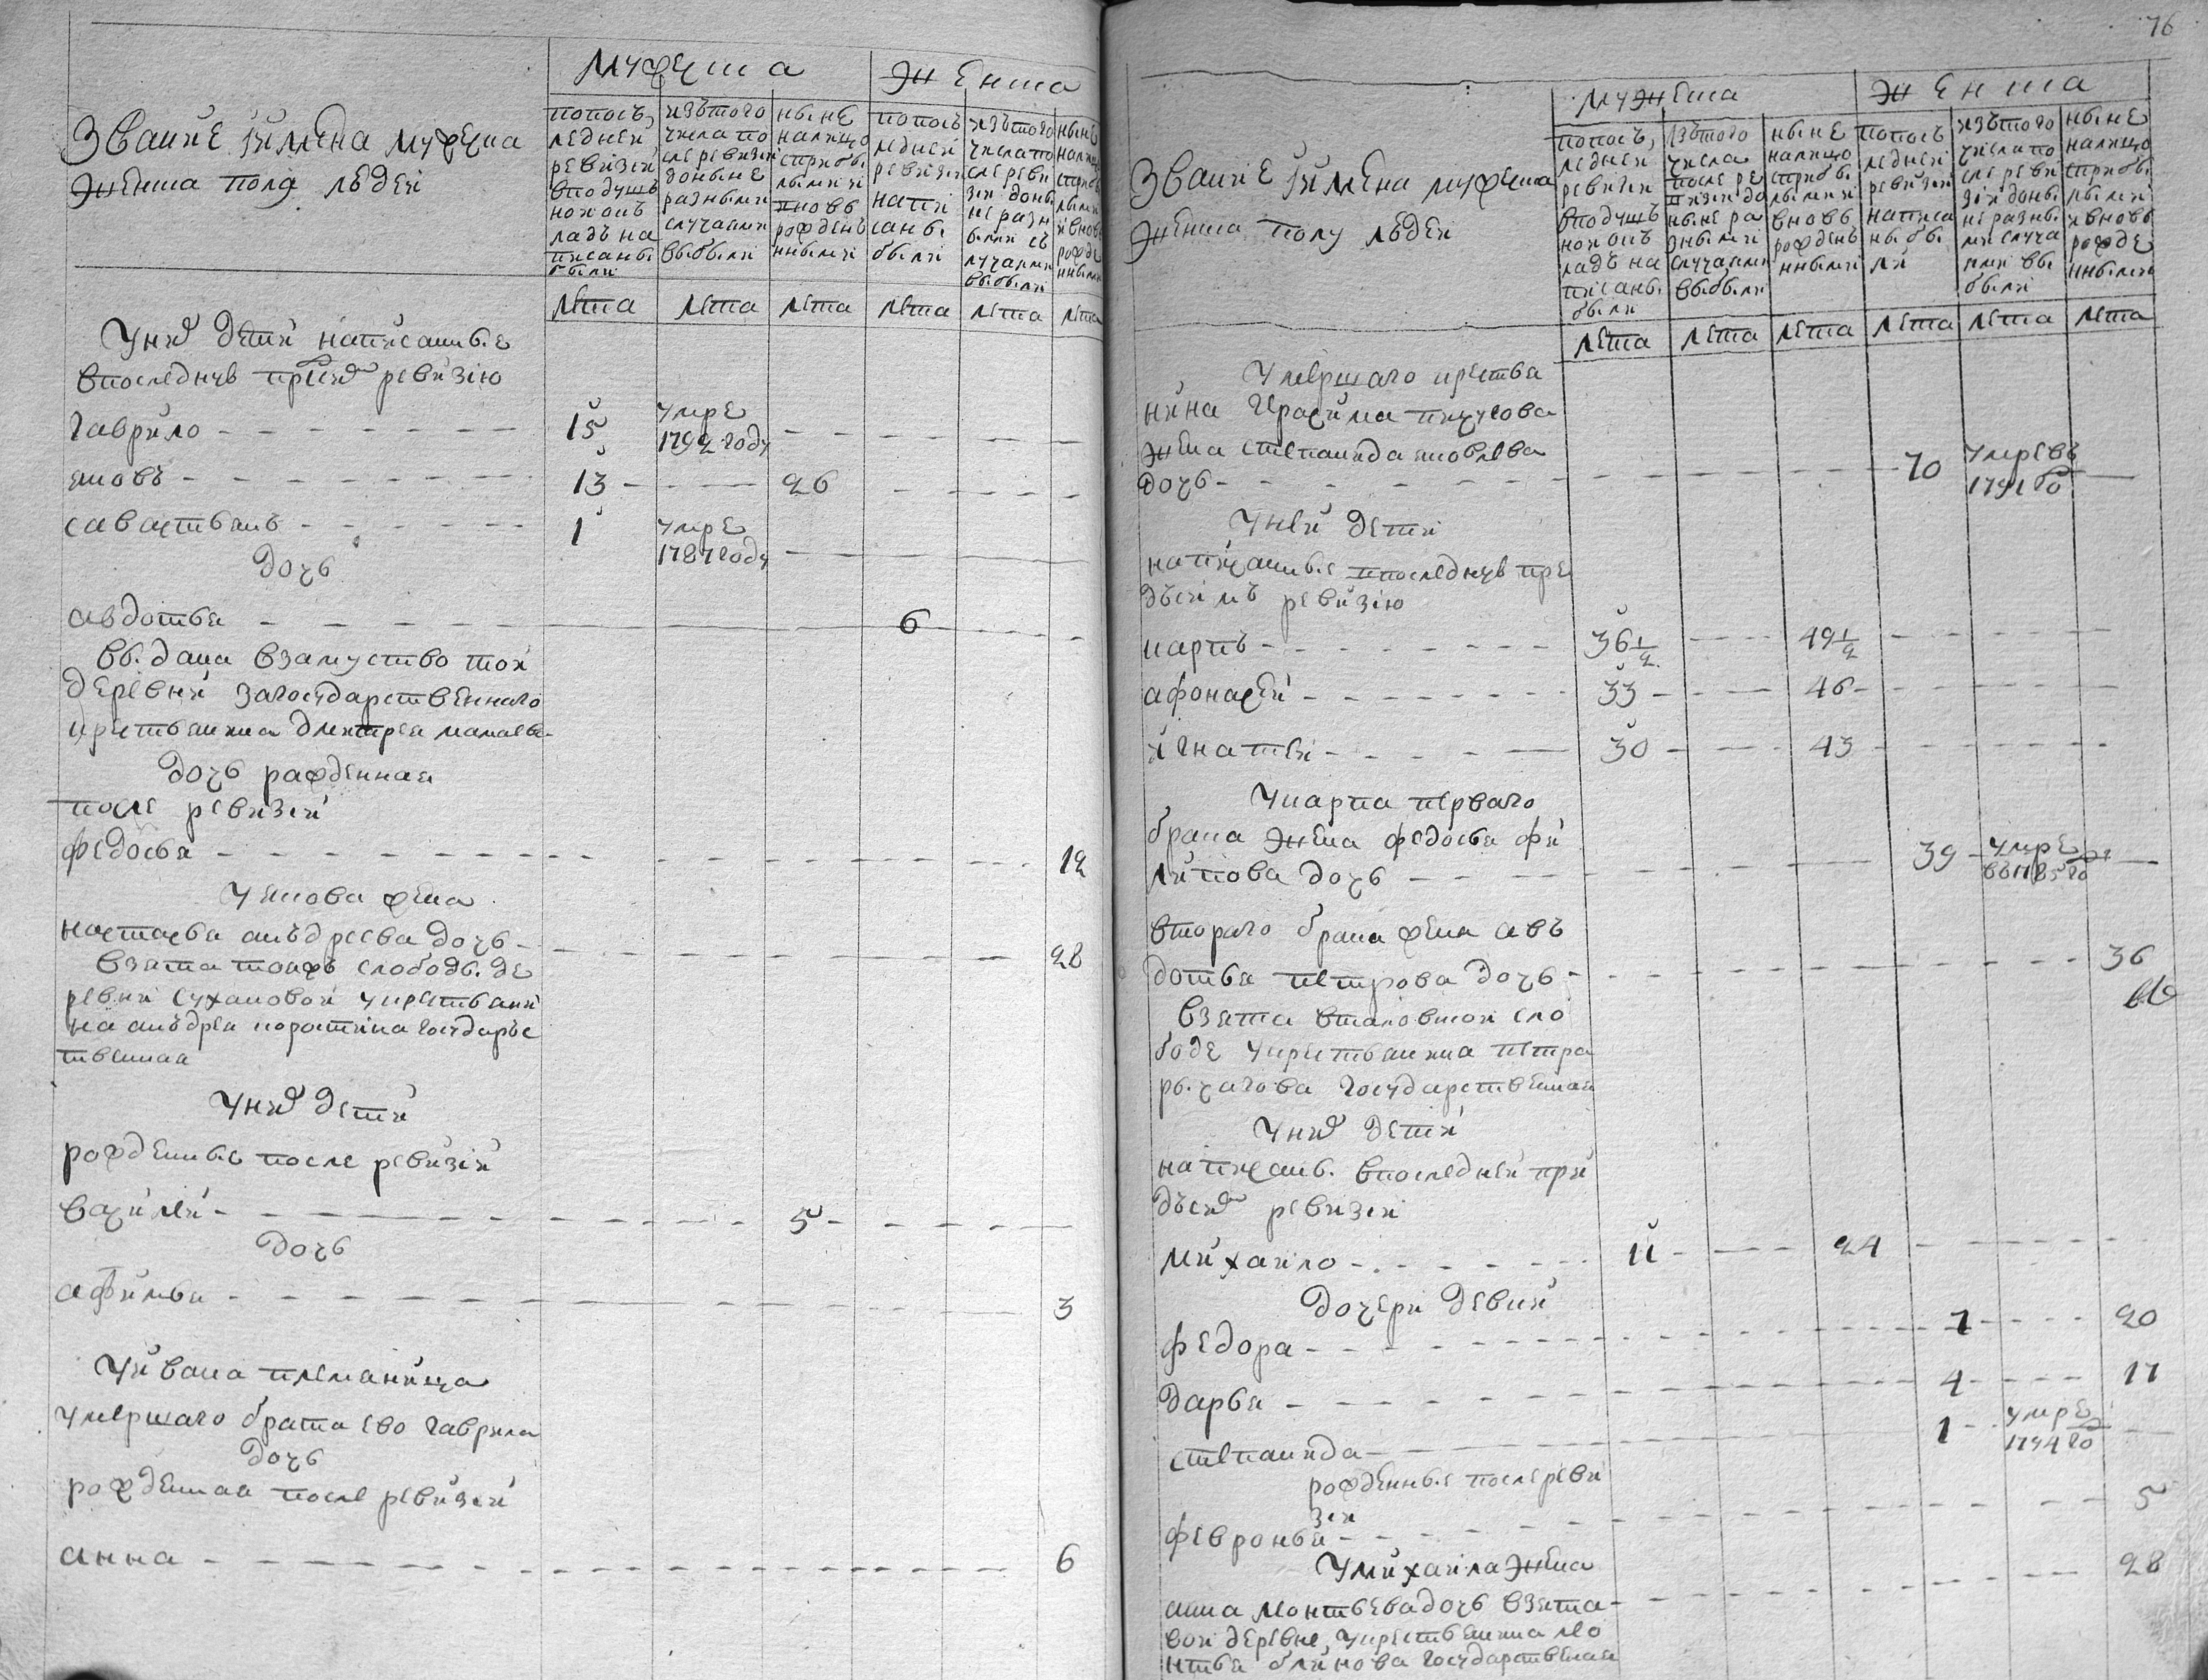 Звание и имена мужеска
женска пола людей
мужеска
женска
попось
ледней
ревизии
вподуш
ной окъ
ладъ на
писаны
были
изътого
числа по
сле ревизии
доныне
разными
случаями
выбыли
ныне
налицо
сприбы
лыми и
вновь
рожденъ
ными
попось
ледней
ревизии
напи
саны
были
изътого
числа по
сле реви
зии доны
не разн
ыми съ
лучаями
выбыли
ныне
лета лета лета лета лета лета
У них дети написанные
впоследнюю пред сим ревизию
гаврило 15 умре
1792 году
яковъ 13 26
савастьянъ 1 умре
1787 году
дочь
авдотья 6
выдана взамуство той
деревни загосударственнаго
крестьянина дмитрея
дочь рожденная
после ревизии
федосья 12
У якова жена
настасья анъдреева дочь 28
взята тояжъ слободы де
ревни сухановой укрестьяни
на анъдрея короткина государс
твенная
У них дети
рожденные после ревизии
василей 5
дочь
афимья 3
У ивана племяница
умершаго брата ево гаврила
дочь
рожденная после ревизии
анна 6
76
Звание и имена мужеска
женска полу людей
мужеска
женска
попось
ледней
ревизии
вподушъ
ной окъ
ладъ на
писаны
были
изътого
числа
после ре
визии до
ныне ра
зными
случаями
выбыли
ныне
налицо
сприбы
лыми и
вновь
рожденъ
ными
попось
ледней
ревизии
написа
ны бы
ли
изътого
числа по
сле реви
зии доны
не разны
ми случа
ями вы
были
ныне
налицо
сприбы
лыми
и вновь
рожде
нными
лета лета лета лета лета лета
Умершаго крестья
нина Герасима пичугова
жена степанида яковлева
дочь 70 умре въ
1791 го
У ней дети
написанные впоследнюю пре
дъсимъ ревизию
карпъ 36 1/2 49 1/2
афонасей 33 46
игнатей 30 43
У карпа перваго
брака жена федосья фи
липова дочь 39 умре
въ 1785 го
втораго брака жена авъ
дотья петрова дочь 36
взята вталовской сло
боде укрестьянина петра
рычагова государственная
У них дети
написаны впоследней при
дъсим ревизии
михайло 11 24
дочери девки
федора 7 20
дарья 4 17
степанида 1 умре
1794 го
рожденные после реви
зии
февронья 5
У михаила жена 28
анна леонтьева дочь взята
вой деревне, укрестьянина лео
нтья блинова государственная